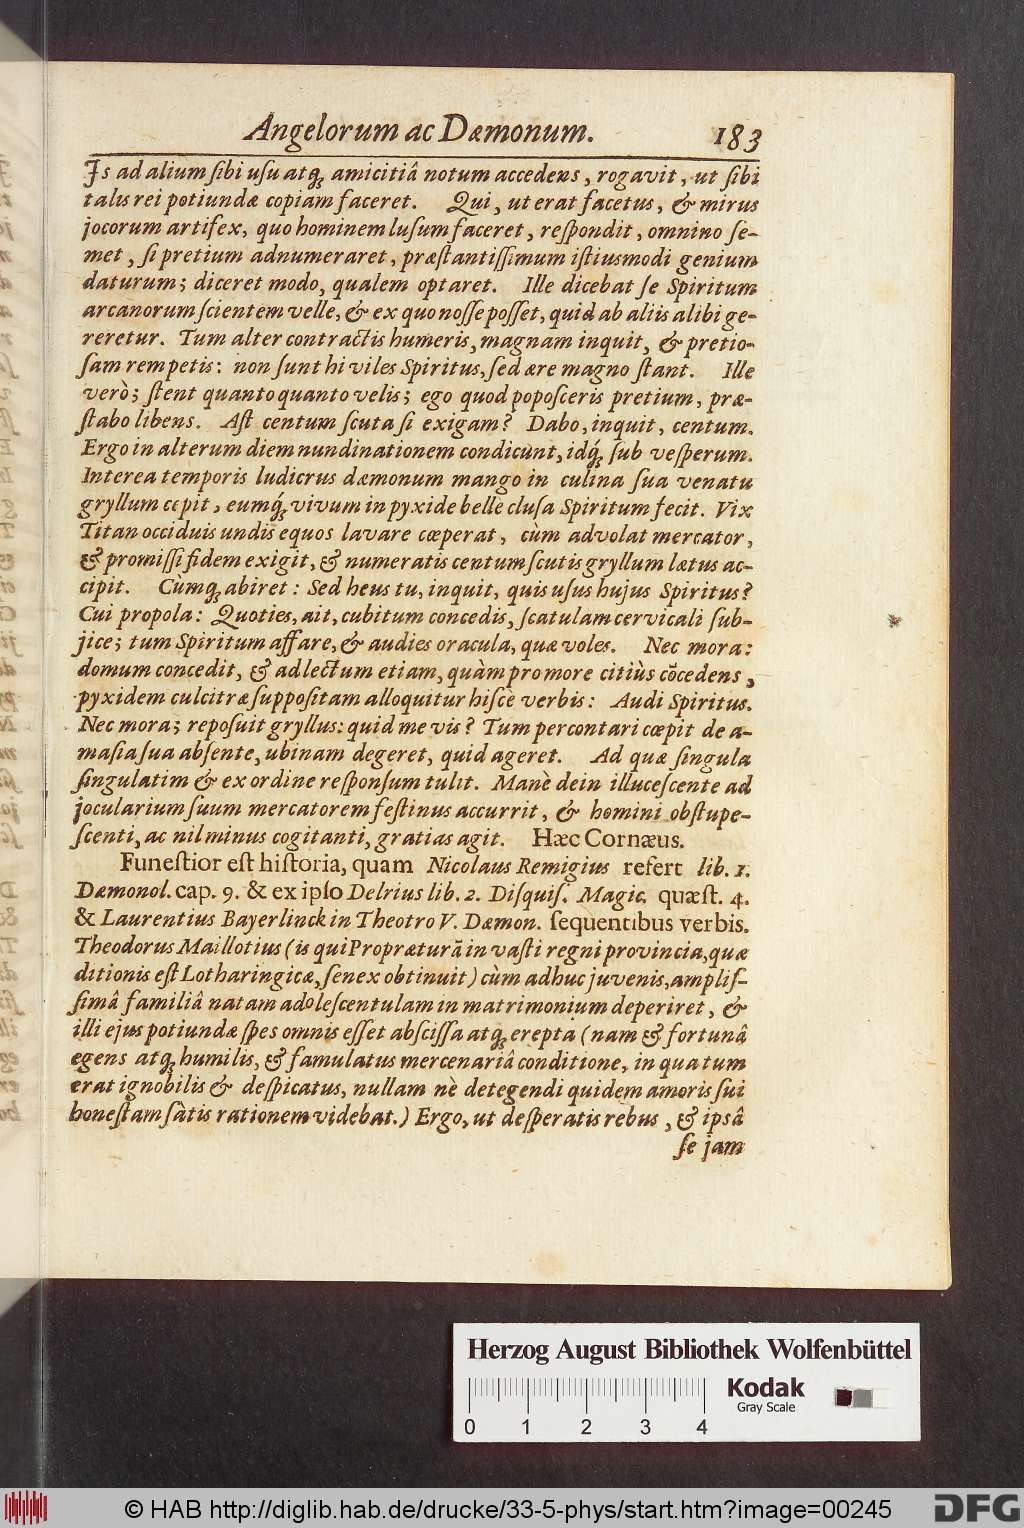 Angelorum ac Dæmonum. 183
Is ad alium ſibi uſu atq; amicitiâ notum accedens, rogavit, ut ſibi
talis rei potiundæ copiam faceret. Qui, ut erat facetus, & mirus
jocorum artifex, quo hominem luſum faceret, reſpondit, omnino ſe-
met, ſi pretium adnumeraret, præſtantiſſimum iſtiusmodi genium
daturum; diceret modo, qualem optaret. Ille dicebat ſe Spiritum
arcanorum ſcientem velle, & ex quo noſſe poſſet, quid ab aliis alibi ge-
reretur. Tum alter contractis humeris, magnam inquit, & pretio-
ſam rem petis: non ſunt hi viles Spiritus, ſed ære magno ſtant. Ille
verò; ſtent quanto quanto velis; ego quod popoſceris pretium, præ-
ſtabo libens. Aſt centum ſcuta ſi exigam? Dabo, inquit, centum.
Ergo in alterum diem nundinationem condicunt, idq́; ſub veſperum.
Interea temporis ludicrus dæmonum mango in culina ſua venatu
gryllum cepit, eumq́; vivum in pyxide belle cluſa Spiritum fecit. Vix
Titan occiduis undis equos lavare cœperat, cùm advolat mercator,
& promiſſi fidem exigit, & numeratis centum ſcutis gryllum lætus ac-
cipit. Cùmq; abiret: Sed heus tu, inquit, quis uſus hujus Spiritus?
Cui propola: Quoties, ait, cubitum concedis, ſcatulam cervicali ſub-
jice; tum Spiritum affare, & audies oracula, quæ voles. Nec mora:
domum concedit, & ad lectum etiam, quàm pro more citiùs cōcedens,
pyxidem culcitræ ſuppoſitam alloquitur hiſcè verbis: Audi Spiritus.
Nec mora; repoſuit gryllus: quid me vis? Tum percontari cœpit de a-
maſia ſua abſente, ubinam degeret, quid ageret. Ad quæ ſingula
ſingulatim & ex ordine reſponſum tulit. Manè dein illuceſcente ad
jocularium ſuum mercatorem feſtinus accurrit, & homini obſtupe-
ſcenti, ac nil minus cogitanti, gratias agit. Hæc Cornæus.
Funeſtior eſt hiſtoria, quam Nicolaus Remigius refert lib. 1.
Dæmonol. cap. 9. & ex ipſo Delrius lib. 2. Diſquiſ. Magic. quæſt. 4.
& Laurentius Bayerlinck in Theotro V. Dæmon. ſequentibus verbis.
Theodorus Maillotius (is qui Propræturā in vaſti regni provincia, quæ
ditionis eſt Lotharingicæ, ſenex obtinuit) cùm adhuc juvenis, ampliſ-
ſimâ familiâ natam adoleſcentulam in matrimonium deperiret, &
illi ejus potiundæ ſpes omnis eſſet abſciſſa atq; erepta (nam & fortunâ
egens atq; humilis, & famulatus mercenariâ conditione, in qua tum
erat ignobilis & deſpicatus, nullam nè detegendi quidem amoris ſui
honeſtam ſàtis rationem videbat.) Ergo, ut deſperatis rebus, & ipsâ
ſe jam
Herzog August Bibliothek Wolfenbüttel
Kodak
Gray Scale
0 1 2 3 4
© HAB http://diglib.hab.de/drucke/33-5-phys/start.htm?image=00245
DFG